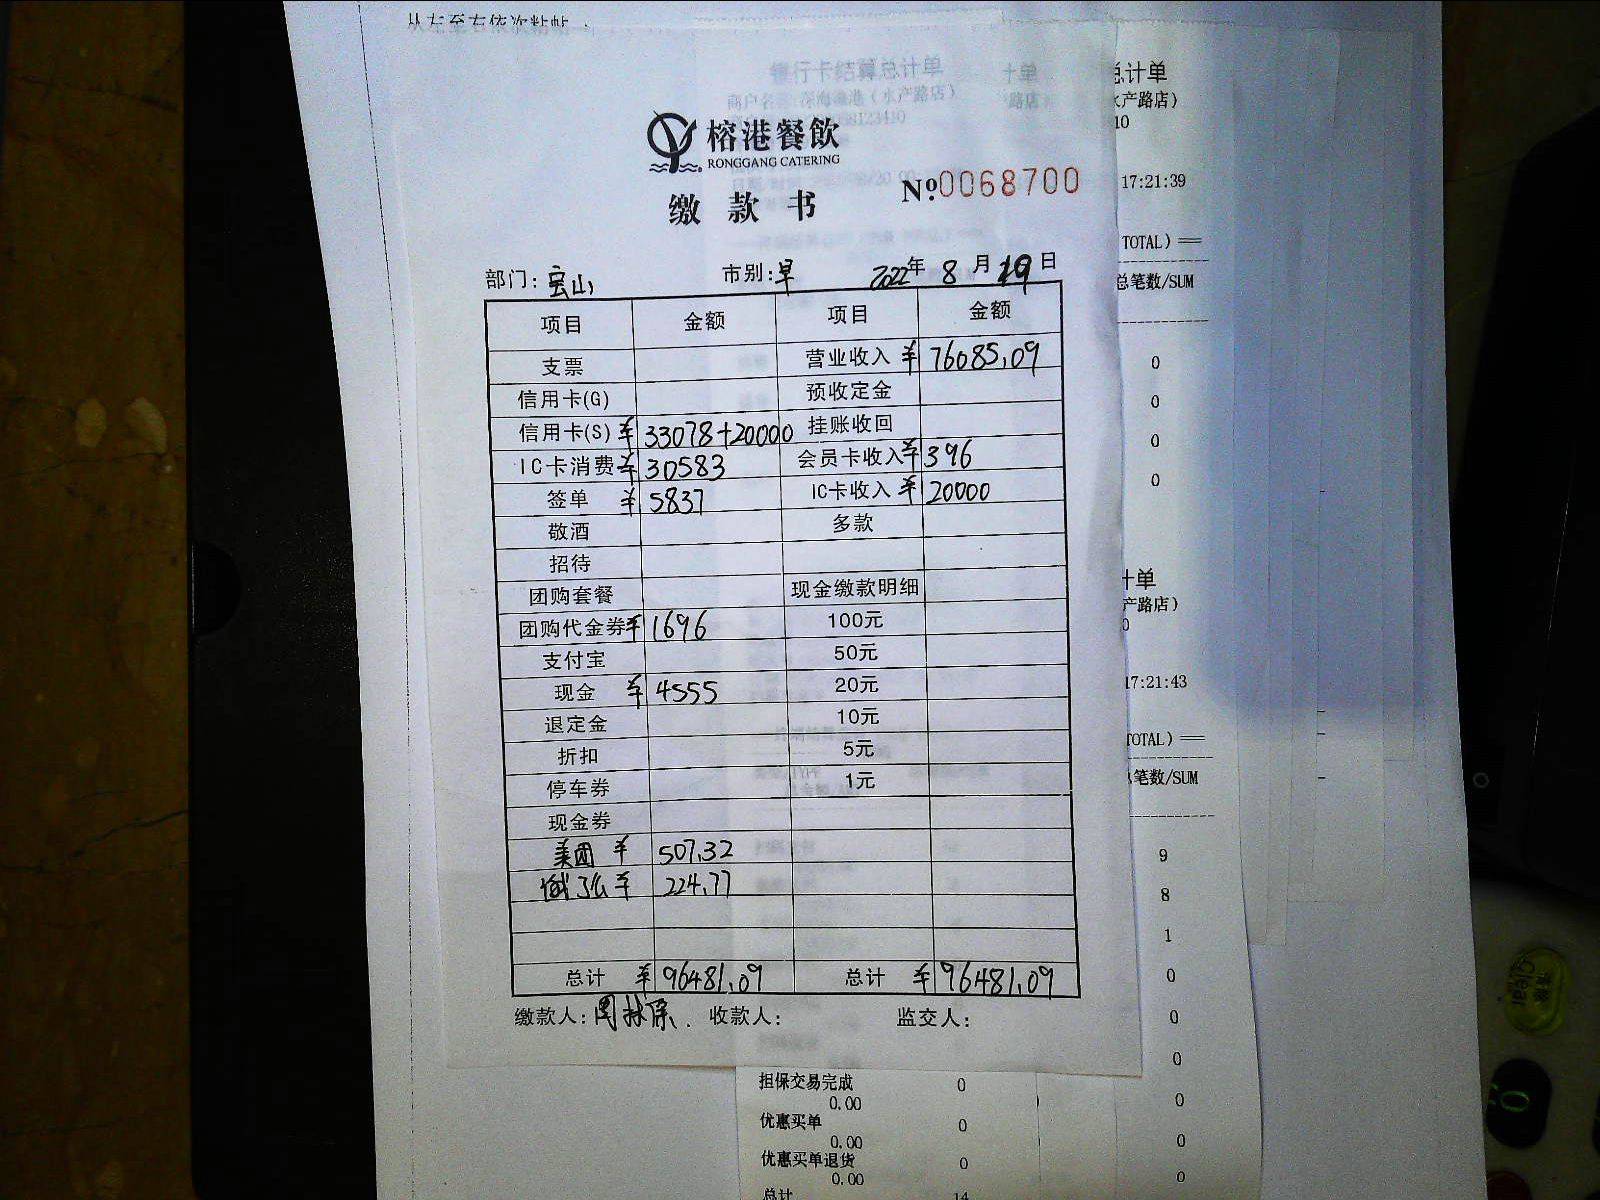 从左至右依次粘帖
银行卡结算总计单
计单
总计单
水产路店)
10
榕港餐飲
RONGGANG CATERING
缴款书
№.0068700
17:21:39
TOTAL) ==
总笔数/SUM
部门: 宝山 市别: 早 2022年 8月 19日
项目 金额 项目 金额
支票 营业收入 ¥ 76085.09
信用卡(G) 预收定金
信用卡(S) ¥ 33078+20000 挂账收回
IC卡消费 ¥ 30583 会员卡收入 ¥ 396
签单 ¥ 5837 IC卡收入 ¥ 20000
敬酒 多款
招待
团购套餐 现金缴款明细
团购代金券 ¥ 1696 100元
支付宝 50元
现金 ¥ 4555 20元
退定金 10元
折扣 5元
停车券 1元
现金券
美团 ¥ 507.32
饿了么 ¥ 224.77
总计 ¥ 96481.09 总计 ¥ 96481.09
缴款人: 收款人: 监交人:
0
0
0
0
计单
产路店)
0
17:21:43
TOTAL) ==
总笔数/SUM
9
8
1
0
0
0
0
0
0
担保交易完成 0
0.00
优惠买单 0
0.00
优惠买单退货 0
0.00
总计 14
清除
Clear
0